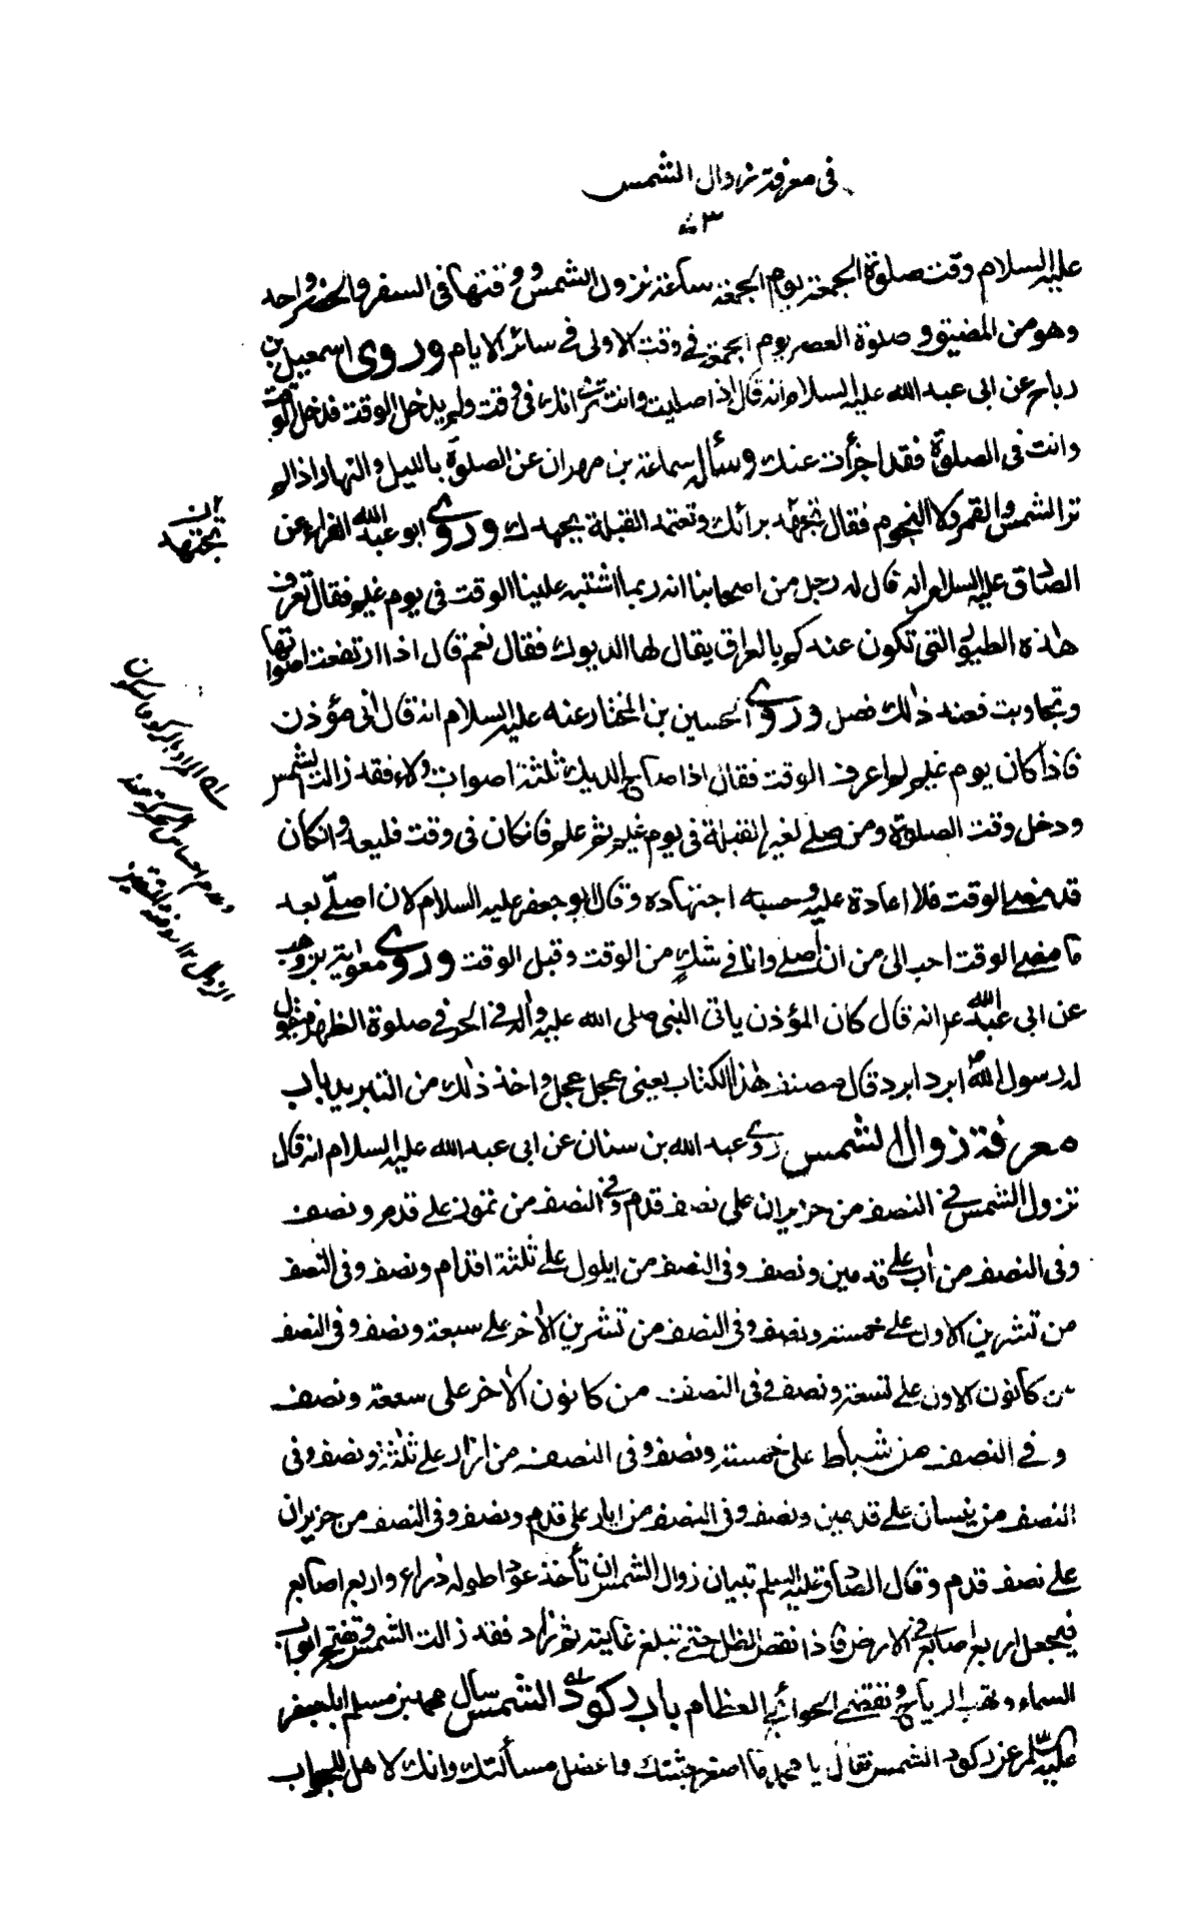 في معرفة زوال الشمس
٤٣
عليه السلام وقت صلوة الجمعة يوم الجمعة ساعة تزول الشمس ووقتها في السفر والحضر واحد
وهو من المضيق و صلوة العصر يوم الجمعة في وقت الاولى في سائر الايام وروى اسمعيل بن
رباح عن ابى عبد الله عليه السلام انه قال إذا صليت وانت ترى انك في وقت ولم يدخل الوقت فدخل الوقت
وانت في الصلوة فقد اجزأت عنك وسأله سماعة بن مهران عن الصلوة بالليل والنهار اذا لم
تر الشمس والقمر ولا النجوم فقال تجتهد برائك وتعتمد القبلة بجهدك وروى ابو عبد الله الفراء عن
الصادق عليه السلام انه قال له رجل من اصحابنا انه ربما اشتبه علينا الوقت في يوم غيم فقال تعرف
هذه الطيور التي تكون عندكم بالعراق يقال لها الديوك فقال نعم قال اذا ارتفعت اصواتها
وتجاوبت فعند ذلك فصل وروى الحسين بن المختار عنه عليه السلام انه قال انى مؤذن
فاذا كان يوم غيم لم اعرف الوقت فقال اذا صاح الديك ثلثة اصوات ولاء فقد زالت الشمس
ودخل وقت الصلوة ومن صلى لغير القبلة في يوم غيم ثم علم فانكان في وقت فليعد وانكان
قد مضى الوقت فلا اعادة عليه وحسبه اجتهاده وقال ابو جعفر عليه السلام لان اصلّي بعد
ما مضى الوقت احب الى من ان اصلي وانا في شك من الوقت وقبل الوقت وروى معوية بن وهب
عن ابى عبد الله ع انه قال كان المؤذن ياتى النبى صلى الله عليه واله في الحر في صلوة الظهر فيقول
له رسول الله ص ابرد ابرد قال مصنف هذا الكتاب يعنى عجل عجل واخذ ذلك من التبريد باب
معرفة زوال الشمس روى عبد الله بن سنان عن ابى عبد الله عليه السلام انه قال
تزول الشمس في النصف من حزيران على نصف قدم وفي النصف من تموز على قدم ونصف
وفى النصف من اب على قدمين ونصف وفى النصف من ايلول على ثلثة اقدام ونصف وفى النصف
من تشرين الاول على خمسة ونصف وفى النصف من تشرين الاخر على سبعة ونصف وفى النصف
من كانون الاول على تسعة ونصف وفى النصف من كانون الاخر على سبعة ونصف
وفي النصف من شباط على خمسة ونصف وفى النصف من اذار على ثلثة ونصف وفى
النصف من نيسان على قدمين ونصف وفى النصف من ايار على قدم ونصف وفى النصف من حزيران
على نصف قدم وقال الصادق عليه السلم تبيان زوال الشمس ان تأخذ عودا طوله ذراع واربع اصابع
فيجعل اربع اصابع في الارض فاذا نقص الظل حتى تبلغ غايته ثم زاد فقد زالت الشمس وتفتح ابواب
السماء وتهب الرياح وتقضى الحوائج العظام باب ركود الشمس سأل محمد بن مسلم ابا جعفر
عليه السلم عن ركود الشمس فقال يا محمد ما اصغر جثتك واعضل مسألتك وانك لاهل للجواب
ان
تجتهد